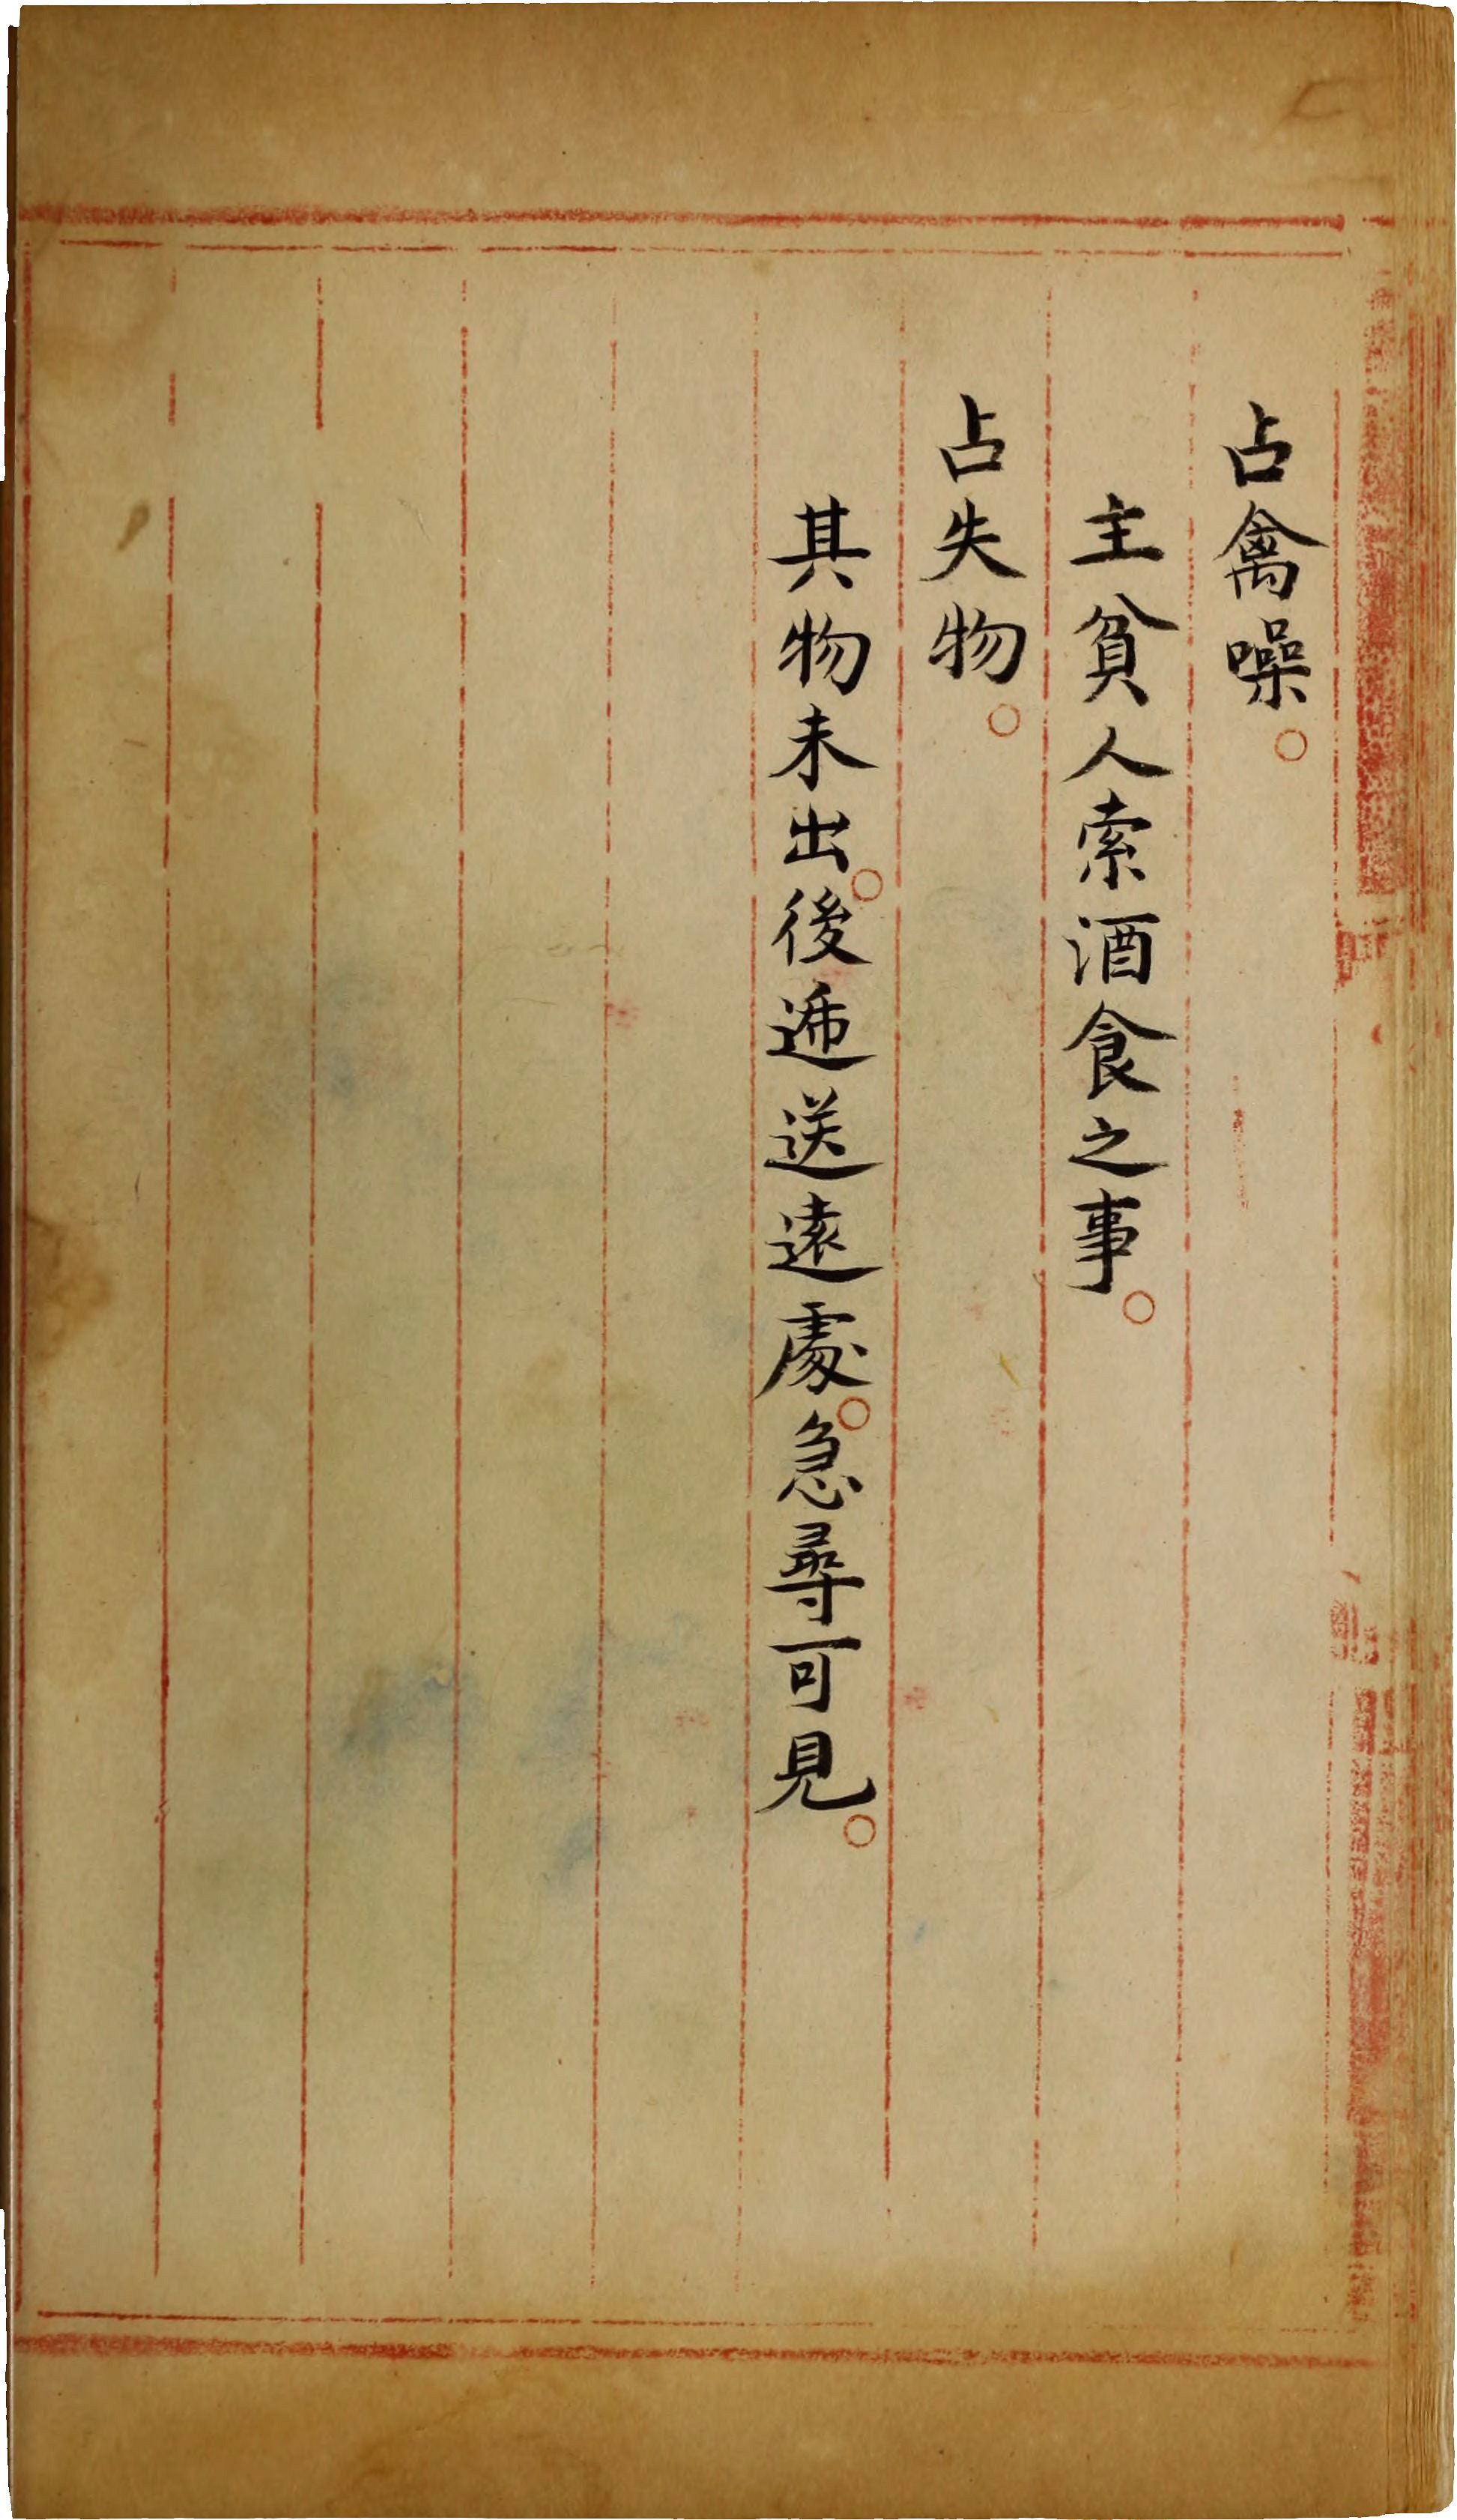 占禽噪。
主貧人索酒食之事。
占失物。
其物未出。後遞送遠處。急尋可見。